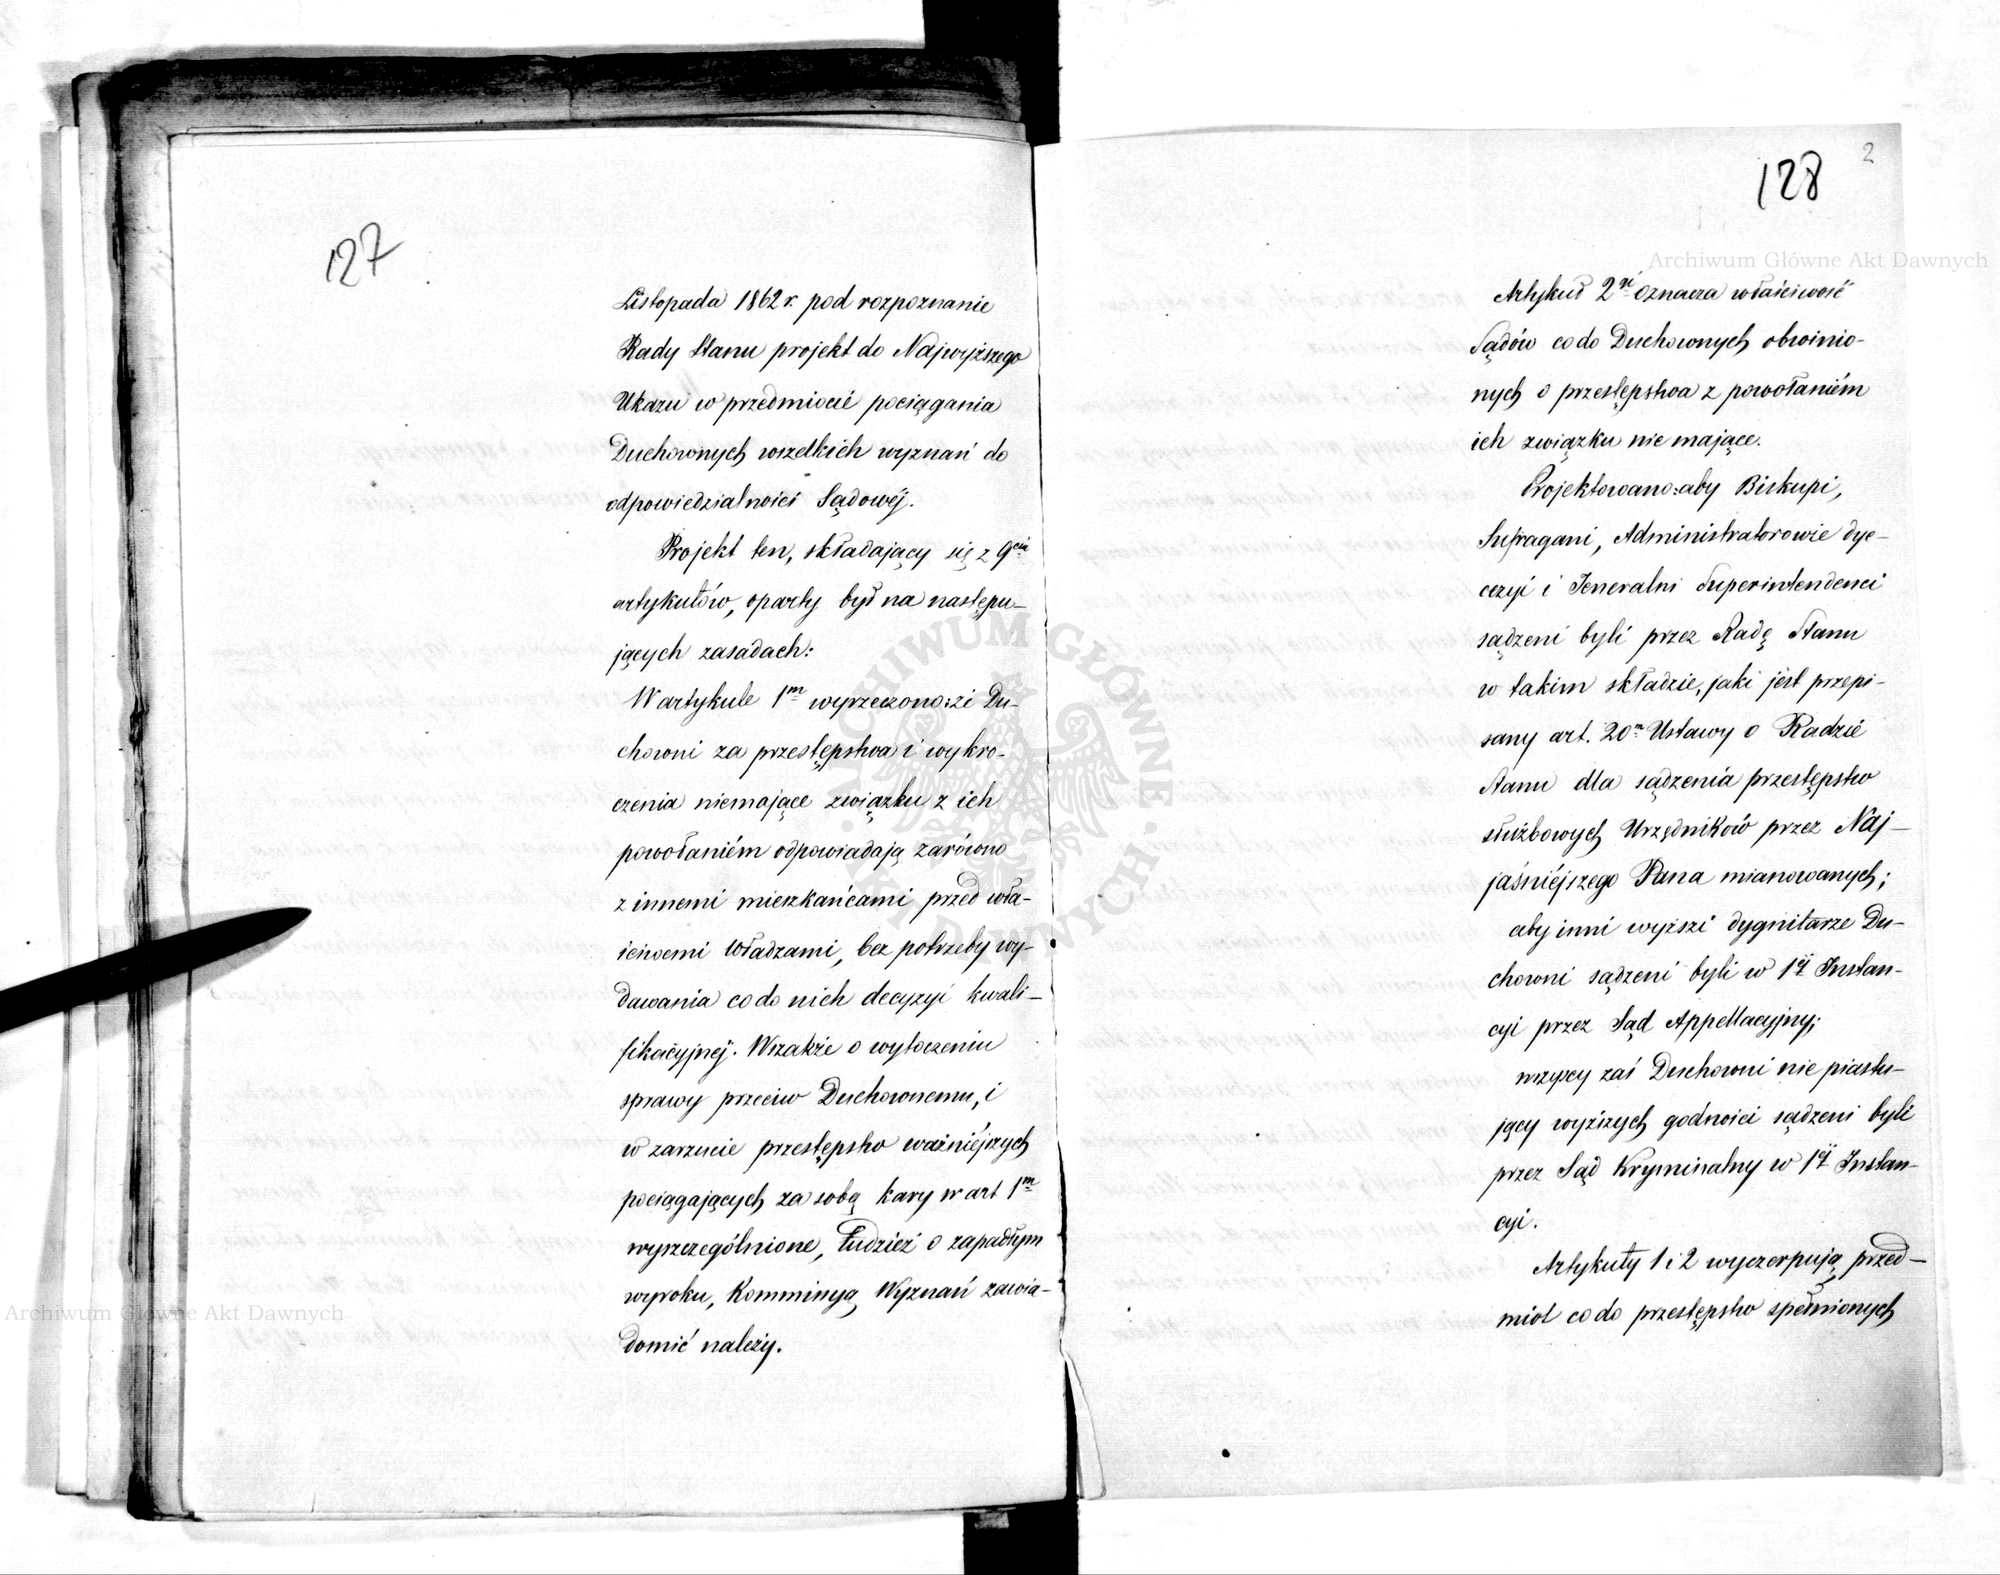 127
Listopada 1862 r. pod rozpoznanie
Rady Stanu projekt do Najwyższego
Ukazu w przedmiocie pociągania
Duchownych wszelkich wyznań do
odpowiedzialności Sądowéj.
Projekt ten, składający się z 9ciu
artykułów, oparty był na następu-
jących zasadach:
W artykule 1m wyrzeczono: że Du-
chowni za przestępstwa i wykro-
czenia niemające związku z ich
powołaniém odpowiadają zarówno
z innemi mieszkańcami przed wła-
ściwemi Władzami, bez potrzeby wy-
dawania co do nich decyzyi kwali-
fikacyjnéj. Wszakże o wytoczeniu
sprawy przeciw Duchownemu, i
w zarzucie przestępstw ważniejszych
pociągających za sobą kary w art 1m
wyszczególnione, tudzież o zapadłym
wyroku, Kommisyą Wyznań zawia-
domić należy.
128
2
Archiwum Główne Akt Dawnych
Artykuł 2gi oznacza właściwość
Sądów co do Duchownych obwinio-
nych o przestępstwa z powołaniém
ich związku nie mające.
Projektowano: aby Biskupi,
Sufragani, Administratorowie dye-
cezyi i Jeneralni Superintendenci
sądzeni byli przez Radę Stanu
w takim składzie, jaki jest przepi-
sany art. 20m Ustawy o Radzie
Stanu dla sądzenia przestępstw
służbowych Urzędników przez Naj-
jaśniéjszego Pana mianowanych;
aby inni wyżsi dygnitarze Du-
chowni sądzeni byli w 1éj Instan-
cyi przez Sąd Appellacyjny;
wszyscy zaś Duchowni nie piastu-
jący wyższych godności sądzeni byli
przez Sąd Kryminalny w 1éj Instan-
cyi.
Artykuły 1 i 2 wyczerpują przed-
miot co do przestępstw spełnionych
Archiwum Główne Akt Dawnych
ARCHIWUM GŁÓWNE AKT DAWNYCH